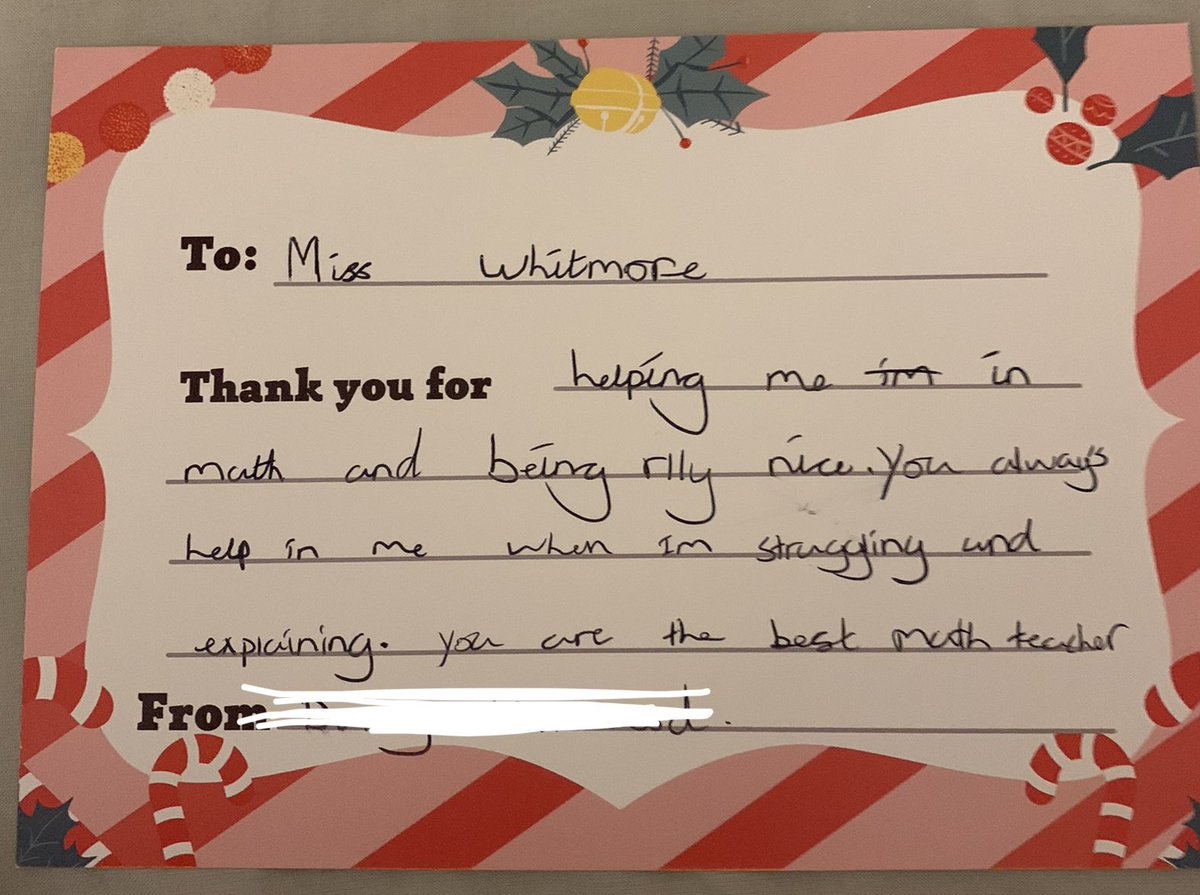 To: Miss Whitmore
Thank you for helping me im in
math and being rlly nice. You always
help in me when Im struggling and
explaining. you are the best math teacher
From